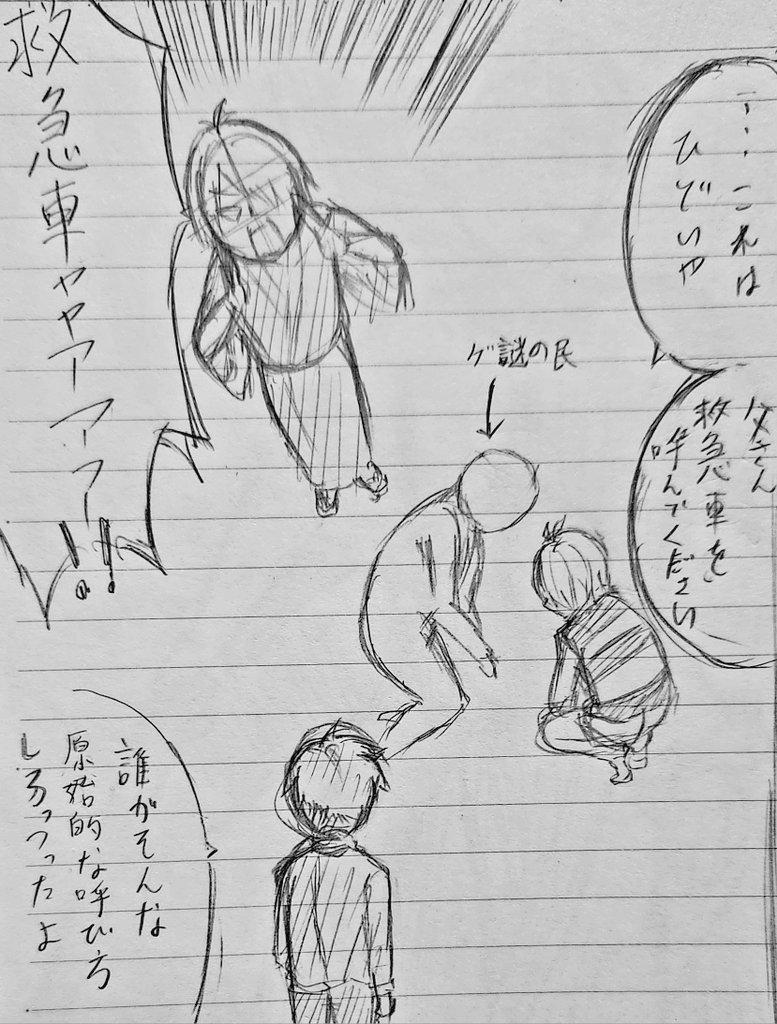 …これは
ひどいや
父さん
救急車を
呼んでください
ゲ謎の民
救急車ャャアアアー!!
誰がそんな
原始的な呼び方
しろっつったよ